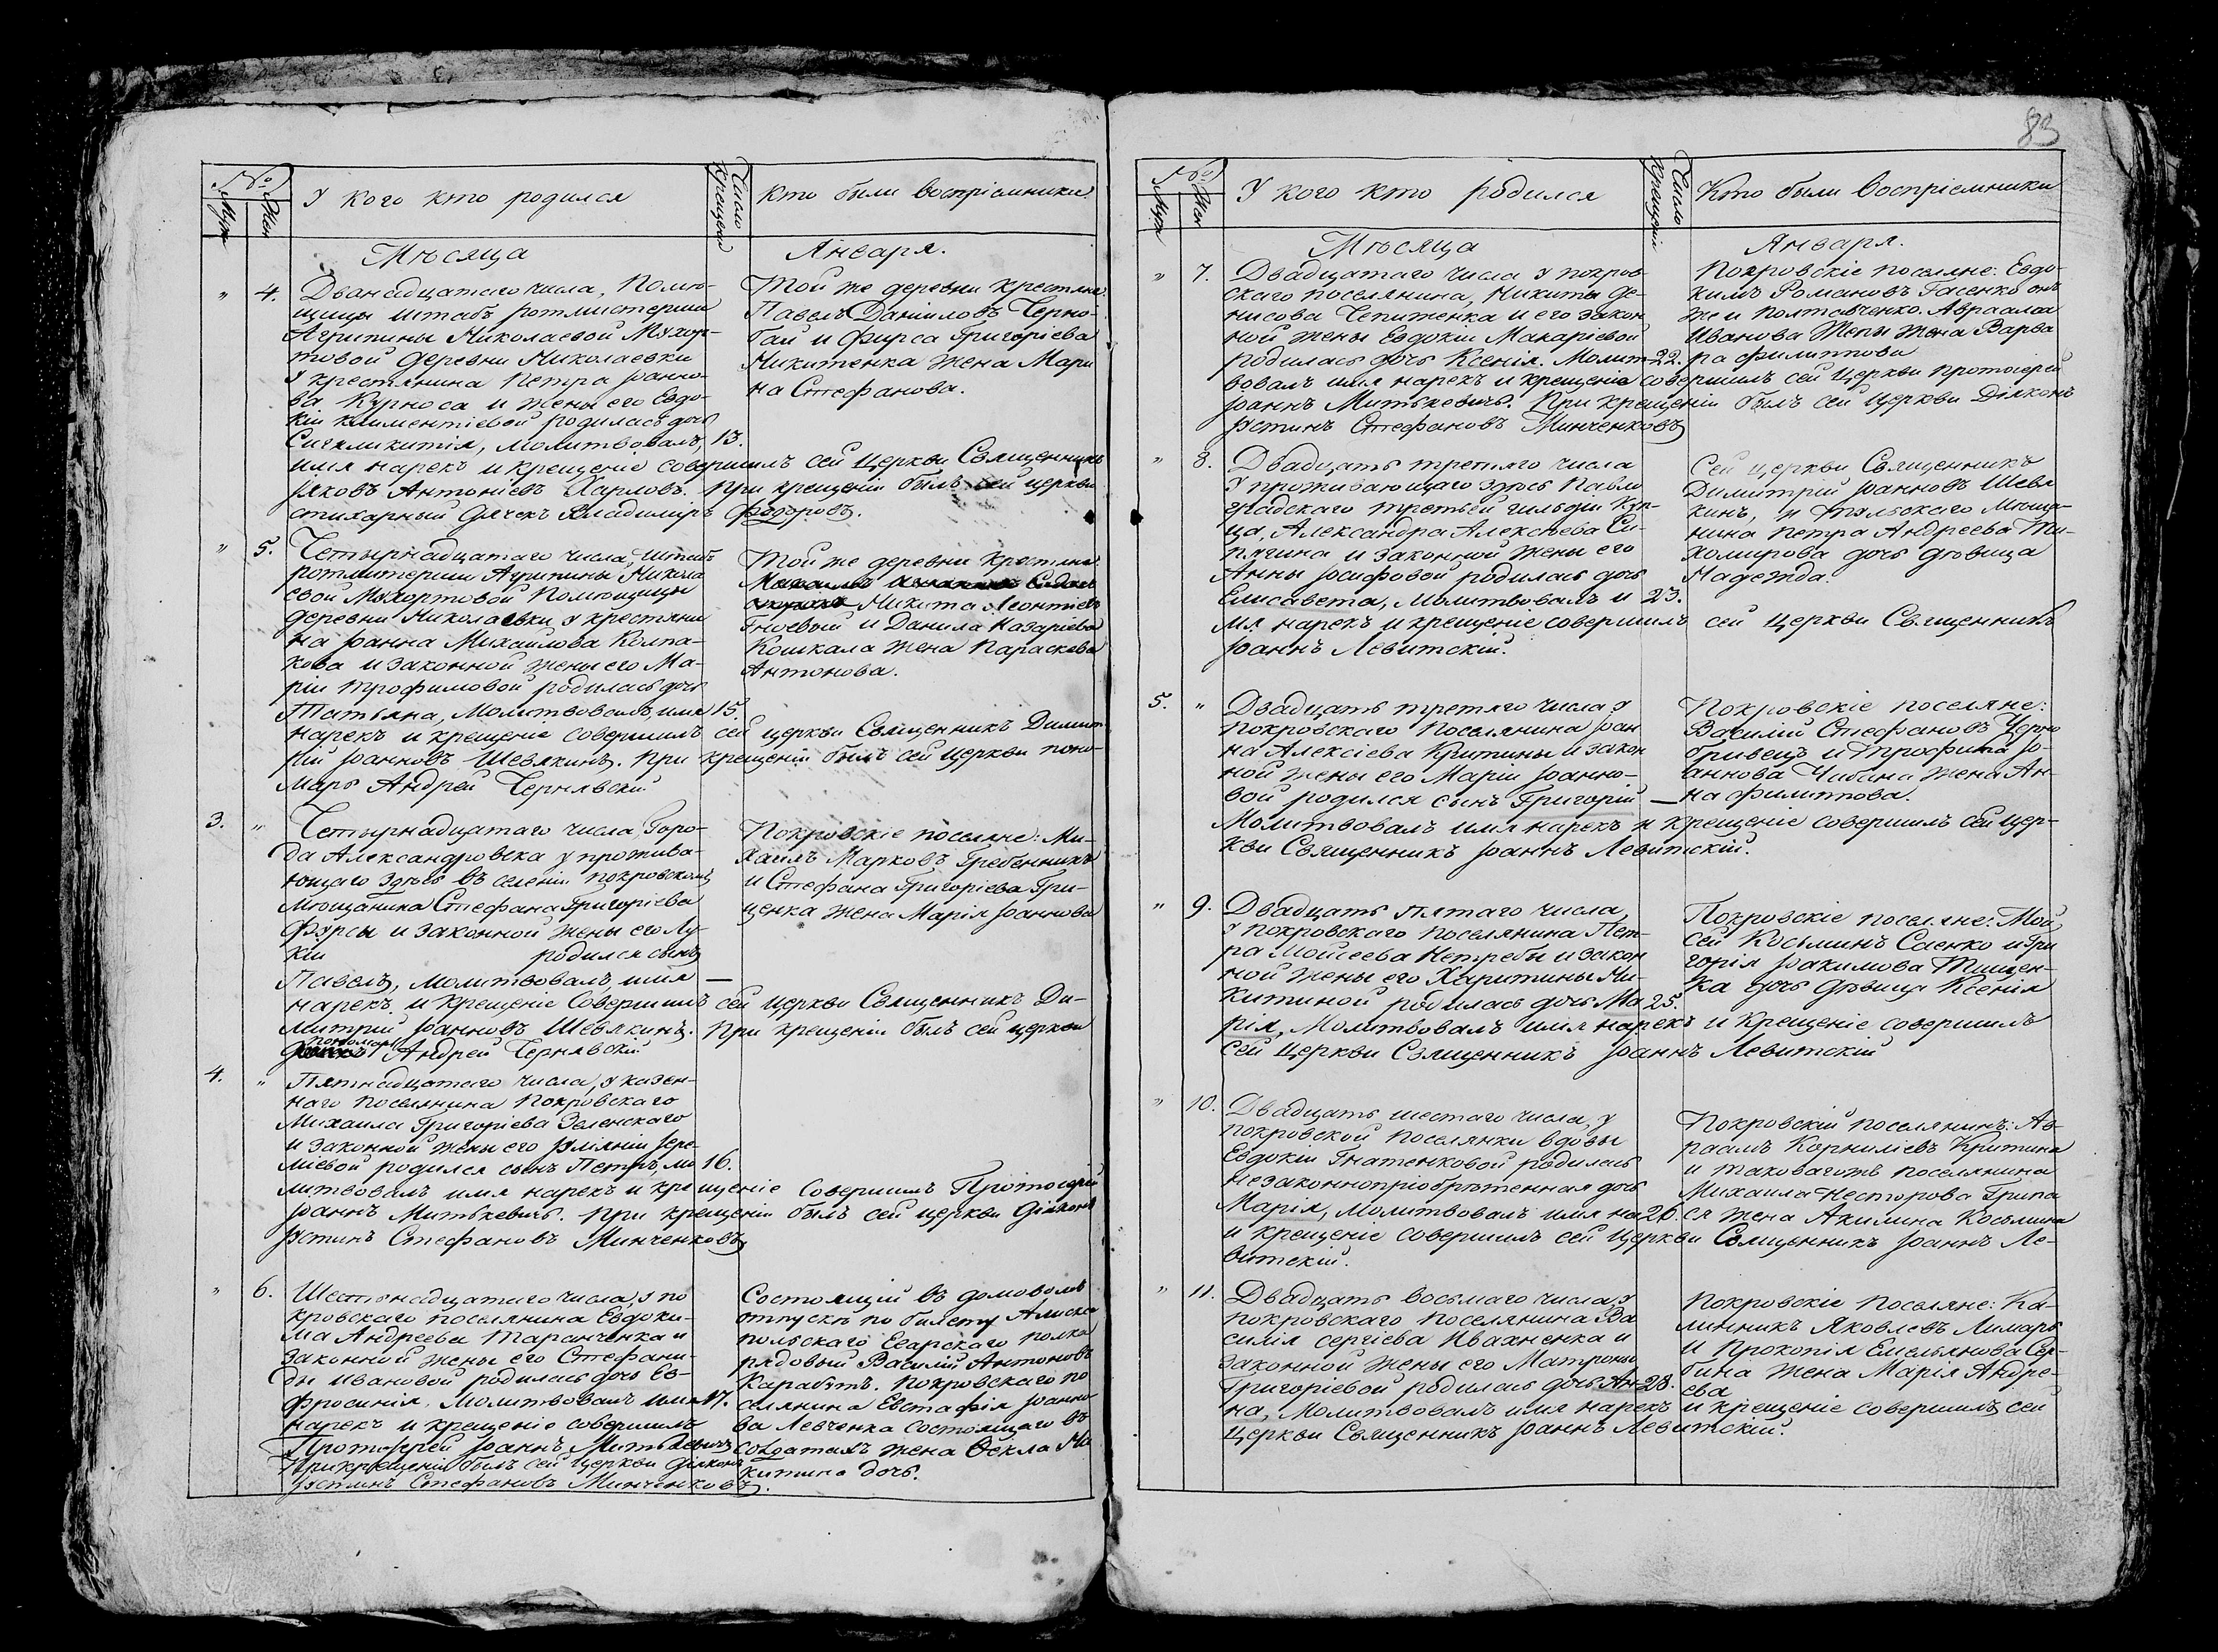 83
№
Муж
Жен
У кого кто родился
Число крещенія
Кто были воспріемники
Мѣсяца
Января.
" 4.
Двѣнадцатаго числа, Помѣ-
щицы штабъ ротмистерши
Агрипины Николаевой Мухор-
товой деревни Николаевки
У крестянина Петра Іоанно-
ва Курноса и жены его Евдо-
кіи Климентіевой родилась дочь
Сигкликитія, Молитвовалъ, 13.
имя нарекъ и крещеніе совершилъ сей Церкви Священникъ
Іяковъ Антоніевъ Харловъ. При крещеніи былъ сей церкви
стихарный Дячекъ Владимиръ Федоровъ.
Той же деревни крестяне:
Павелъ Даніиловъ Черно-
бай и Фирса Григоріева
Никитенка жена Мари
на Стефанова.
" 5.
Четырнадцатаго числа, Штабъ
ротмитерши Агрипины Никола
евой Мухортовой Помѣщицы
деревни Николаевки, у крестяни
на Іоанна Михайлова Колпа-
кова и законной жены его Ма-
ріи Трофимовой родилась дочь
Татьяна, Молитвовалъ, имя 15.
нарекъ и крещеніе совершилъ сей церкви Священникъ Димит-
рій Іоанновъ Шевякинъ. При крещеніи былъ сей Церкви поно-
марь Андрей Чернявскій
Той же деревни Крестяне:
Никита Леонтіевъ
Гноевый и Данила Назаріева
Кошкала жена Параскева
Антонова.
3. "
Четырнадцатаго числа, Горо-
да Александровска у прожива-
ющаго здѣсь въ селеніи Покровскомъ
Мѣщанина Стефана Григоріева
Фурсы и законной жены его Лу-
кіи родился сынъ
Павелъ, молитвовалъ, имя —
нарекъ и крещеніе Совершилъ сей Церкви Священникъ Ди-
митрій Іоанновъ Шевякинъ. При крещеніи былъ сей церкви
пономарь Андрей Чернявскій
Покровскіе поселяне: Ми-
хаилъ Марковъ Гребенникъ
и Стефана Григоріева Гри-
ценка жена Марія Іоаннова
4. "
Пятнадцатаго числа, у казен-
наго поселянина Покровскаго
Михаила Григоріева Зеленскаго
и законной жены его Іуліяніи Іере-
міевой родился сынъ Петръ, мо 16.
литвовалъ имя нарекъ и крещеніе Совершилъ Протоіерей
Іоаннъ Митькевичъ. При крещеніи былъ сей церкви Діяконъ
Іустинъ Стефановъ Минченковъ
" 6.
Шестьнадцатаго числа, у по
кровскаго поселянина Евдоки-
ма Андреева Таранченка и
законной жены его Стефани-
ды Ивановой родилась дочь Ев-
фросинія, Молитвовалъ имя 17.
нарекъ и крещеніе совершилъ
Протоіерей Іоаннъ Митькевичъ
При крещеніи былъ сей Церкви Діяконъ
Іустинъ Стефановъ Минченковъ.
Состоящій въ домовомъ
отпускѣ по билету
польскаго Егарскаго полка
рядовый Василій Антоновъ
Карабутъ. Покровскаго по
селянина Евстафія Іоанно-
ва Левченка состоящаго въ
солдатахъ жена Ѳекла Ни
китина дочь.
№
Муж
Жен
У кого кто родился
Число крещенія
Кто были Воспріемники
Мѣсяца
Января.
" 7.
Двадцатаго числа у покров-
скаго поселянина, Никиты Де-
нисова Чепитенка и его закон
ной жены Евдокіи Макаріевой
родилась дочь Ксенія. Молит- 22.
вовалъ имя нарекъ и крещеніе совершилъ сей Церкви протоіерей
Іоаннъ Митькевичъ. При крещеніи былъ сей Церкви Діяконъ
Іустинъ Стефановъ Минченковъ
Покровскіе поселяне: Евдо-
кимъ Романовъ Гасенко онъ
же и Полтавченко. Авраама
Иванова жена Варва
ра Филиппова
" 8.
Двадцать третяго числа
У проживающаго здѣсь Павло
градскаго третьей гильдіи Куп-
ца, Александра Алексѣева Си-
пягина и законной жены его
Анны Іосифовой родилась дочь
Елисавета, Молитвовалъ и 23.
мя нарекъ и крещеніе совершилъ сей Церкви Священникъ
Іоаннъ Левитскій.
Сей церкви Священникъ
Димитрій Іоанновъ Шевя
кинъ, и Тульскаго Мѣща-
нина Петра Андреева Ти-
хомирова дочь дѣвица
Надежда.
5. "
Двадцать третяго числа у
Покровскаго Поселянина Іоан
на Алексіева Критины и закон
ной жены его Маріи Іоанно-
вой родился сынъ Григорій —
Молитвовалъ имя нарекъ и крещеніе совершилъ сей цер-
кви Священникъ Іоаннъ Левитскій.
Покровскіе поселяне:
Василій Стефановъ Черно
бривецъ и Трофима Іо-
аннова Чабана жена Ан-
на Филиппова.
" 9.
Двадцать пятаго числа,
у покровскаго поселянина Пет-
ра Мойсеева Нетребы и закон
ной жены его Харитины Ни-
китиной родилась дочь Ма 25.
рія, Молитвовалъ имя нарекъ и крещеніе совершилъ
сей Церкви Священникъ Іоаннъ Левитскій
Покровскіе поселяне: Мой-
сей Косьминъ Саенко и Гри
горія Іоакимова Тищен-
ка дочь дѣвица Ксенія
" 10.
Двадцать шестаго числа, у
покровской поселянки вдовы
Евдокіи Гнатенковой родилась
незаконнопріобрѣтенная дочь
Марія, Молитвовалъ имя на 26.
и крещеніе совершилъ сей Церкви Священникъ Іоаннъ Ле-
витскій.
Покровскій поселянинъ: Ав-
раамъ Корниліевъ Критина
и таковагожъ поселянина
Михаила Несторова Грипа
ся жена Акилина Косьмина
" 11.
Двадцать восьмаго числа, у
покровскаго поселянина Ва
силія Сергіева Ивахненка и
законной жены его Матроны
Григоріевой родилась дочь Ан- 28.
на, Молитвовалъ имя нарекъ и крещеніе совершилъ сей
Церкви Священникъ Іоаннъ Левитскій.
Покровскіе Поселяне: Ка-
линникъ Яковлевъ Лимарь
и Прокопія Емельянова Сер-
бина жена Марія Андре-
ева